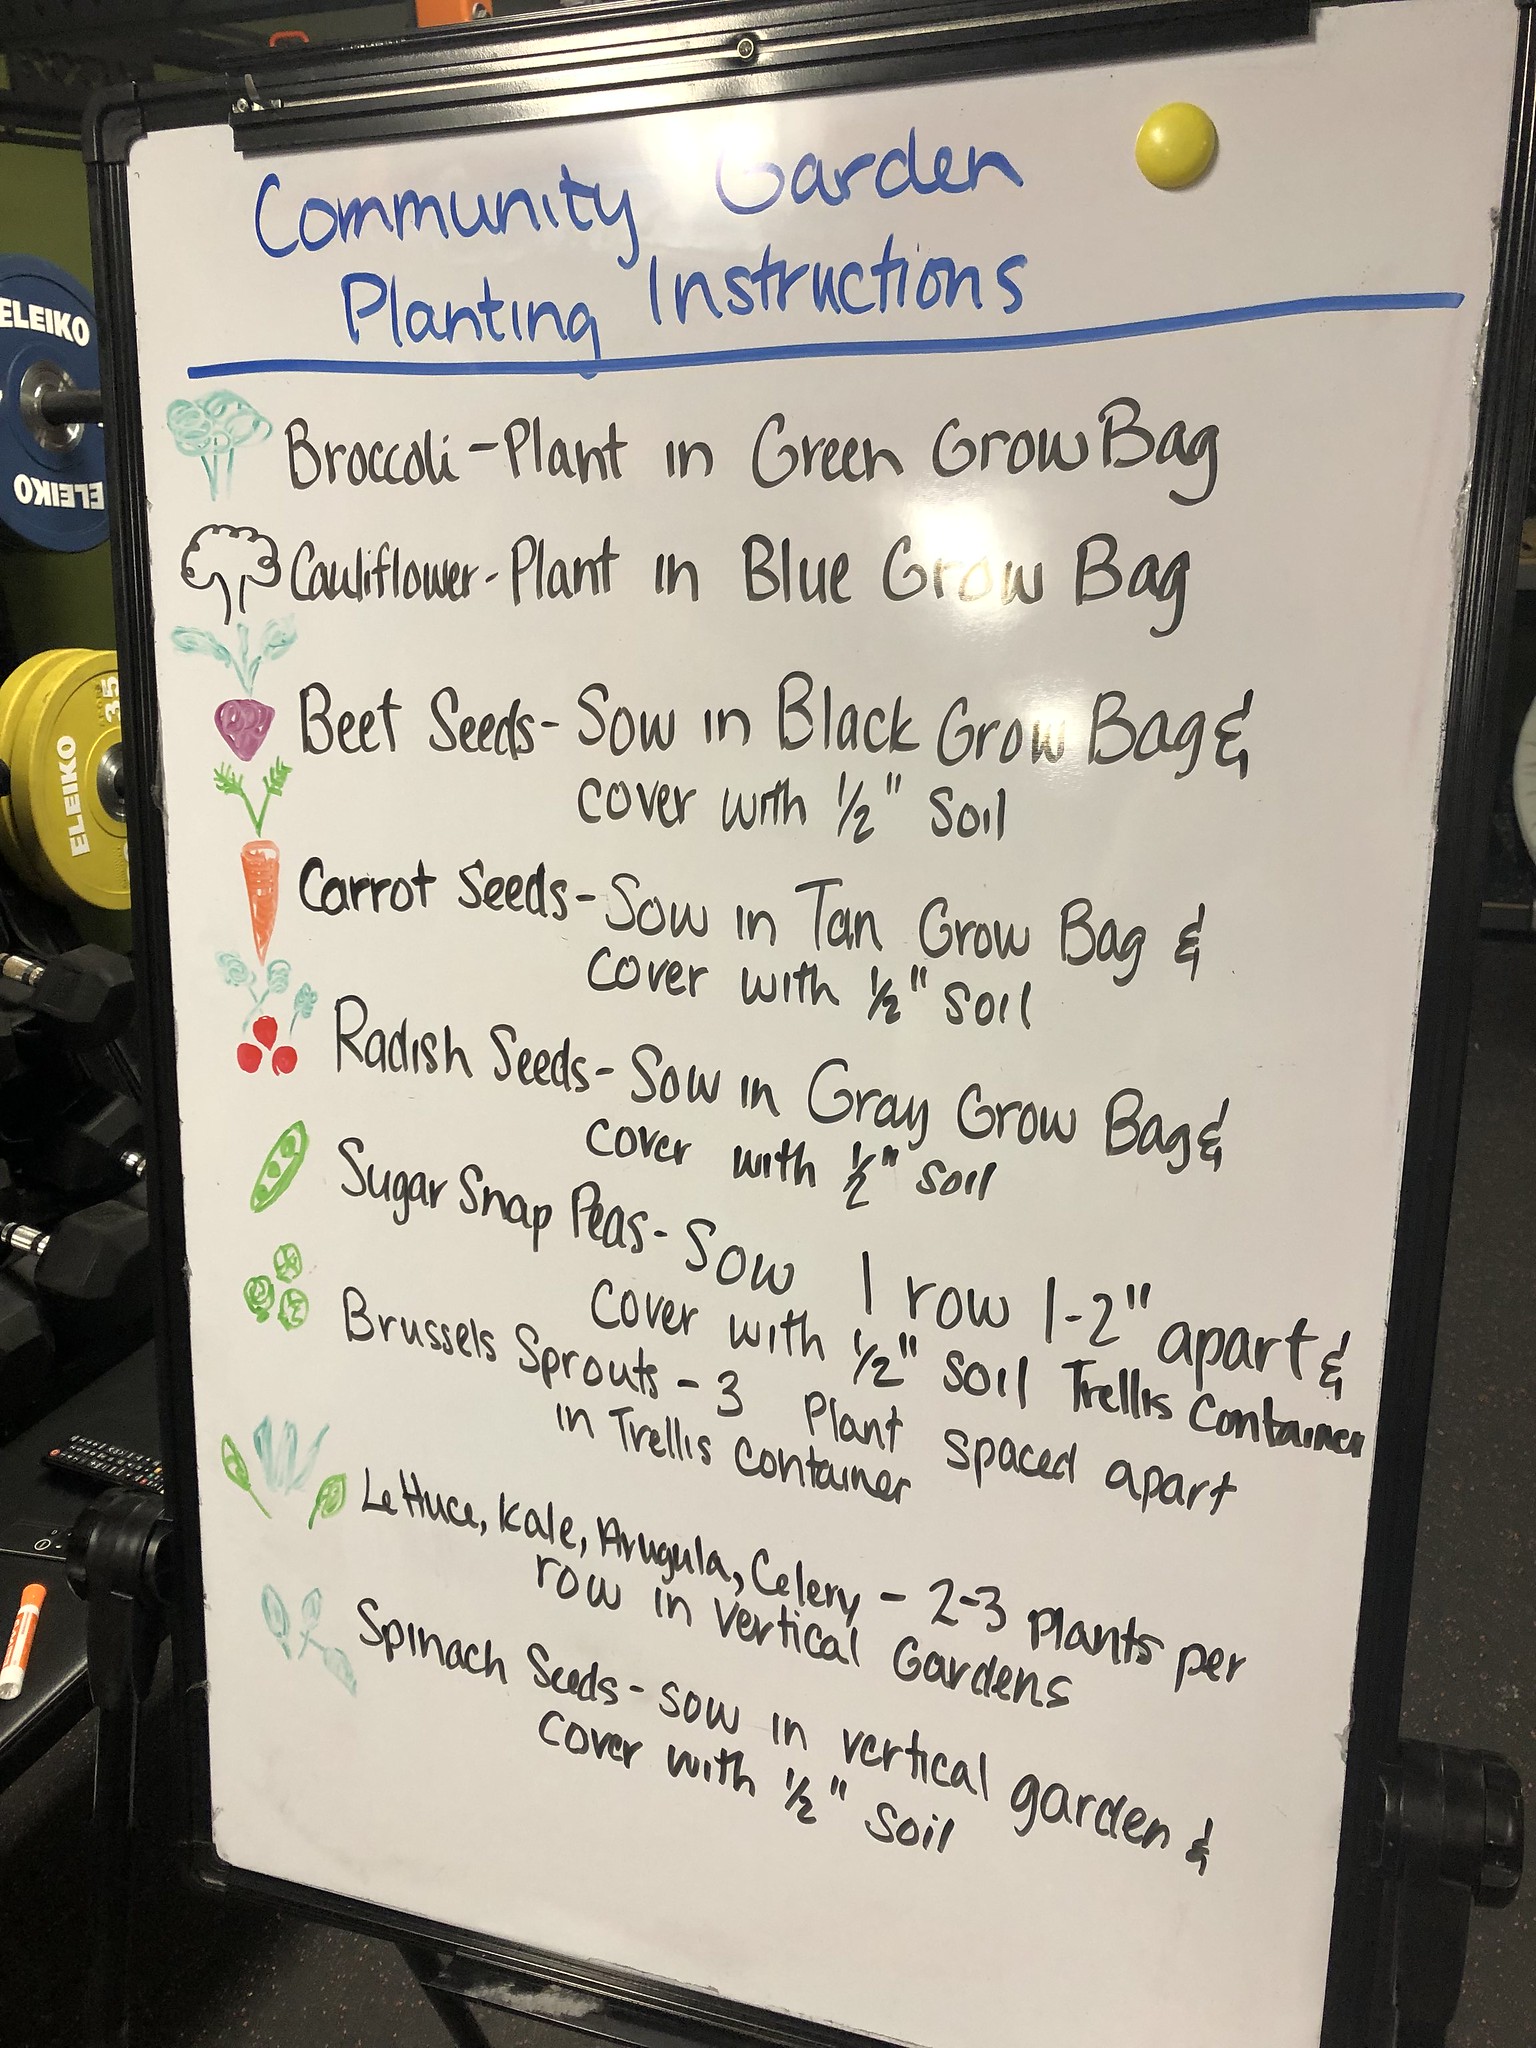 Community Garden
Planting Instructions
Broccoli - Plant in Green Grow Bag
Cauliflower - Plant in Blue Grow Bag
Beet Seeds - Sow in Black Grow Bag &
cover with 1/2" soil
Carrot Seeds - Sow in Tan Grow Bag &
cover with 1/2" soil
Radish Seeds - Sow in Gray Grow Bag &
cover with 1/2" soil
Sugar Snap Peas - Sow 1 row 1-2" apart &
cover with 1/2" soil Trellis Container
Brussels Sprouts - 3 Plant spaced apart
in Trellis container
Lettuce, Kale, Arugula, Celery - 2-3 plants per
row in vertical Gardens
Spinach Seeds - sow in vertical garden &
cover with 1/2" soil
ELEIKO
ELEIKO
35
ELEIKO